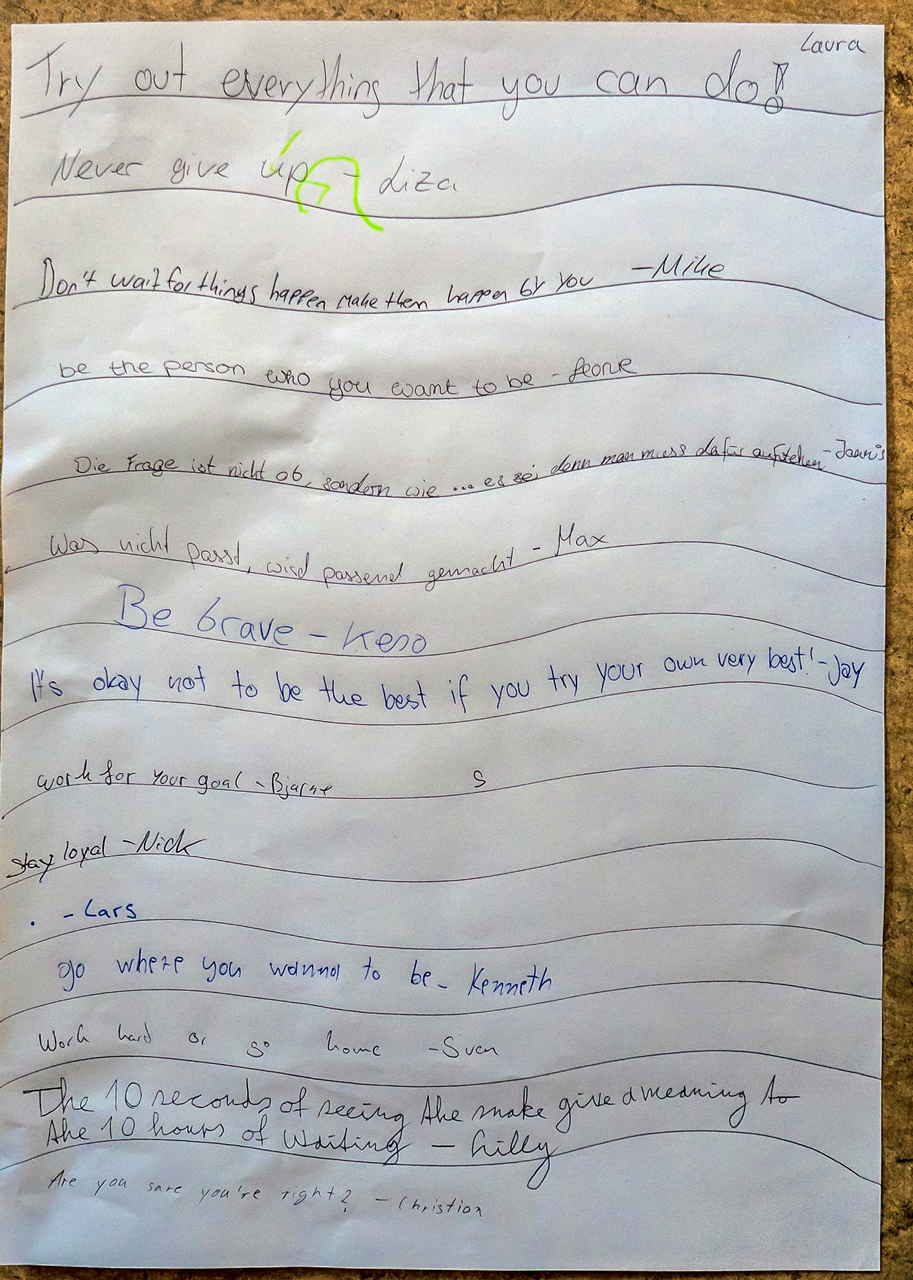 Laura
Try out everything that you can do!
Never give up - Liza
Don't wait for things happen make then happen by you - Mike
be the person who you want to be - Leonie
Die Frage ist nicht ob, sondern wie ... es sei denn man muss dafür aufstehen - Jannis
Was nicht passt, wird passend gemacht - Max
Be brave - Keso
It's okay not to be the best if you try your own very best! - Jay
work for your goal - Bjarne S
stay loyal - Nick
. - Lars
go where you wanna to be - Kenneth
Work hard or go home - Sven
The 10 seconds of seeing the snake give a meaning to
the 10 hours of waiting - Lilly
Are you sure you're right? - Christian